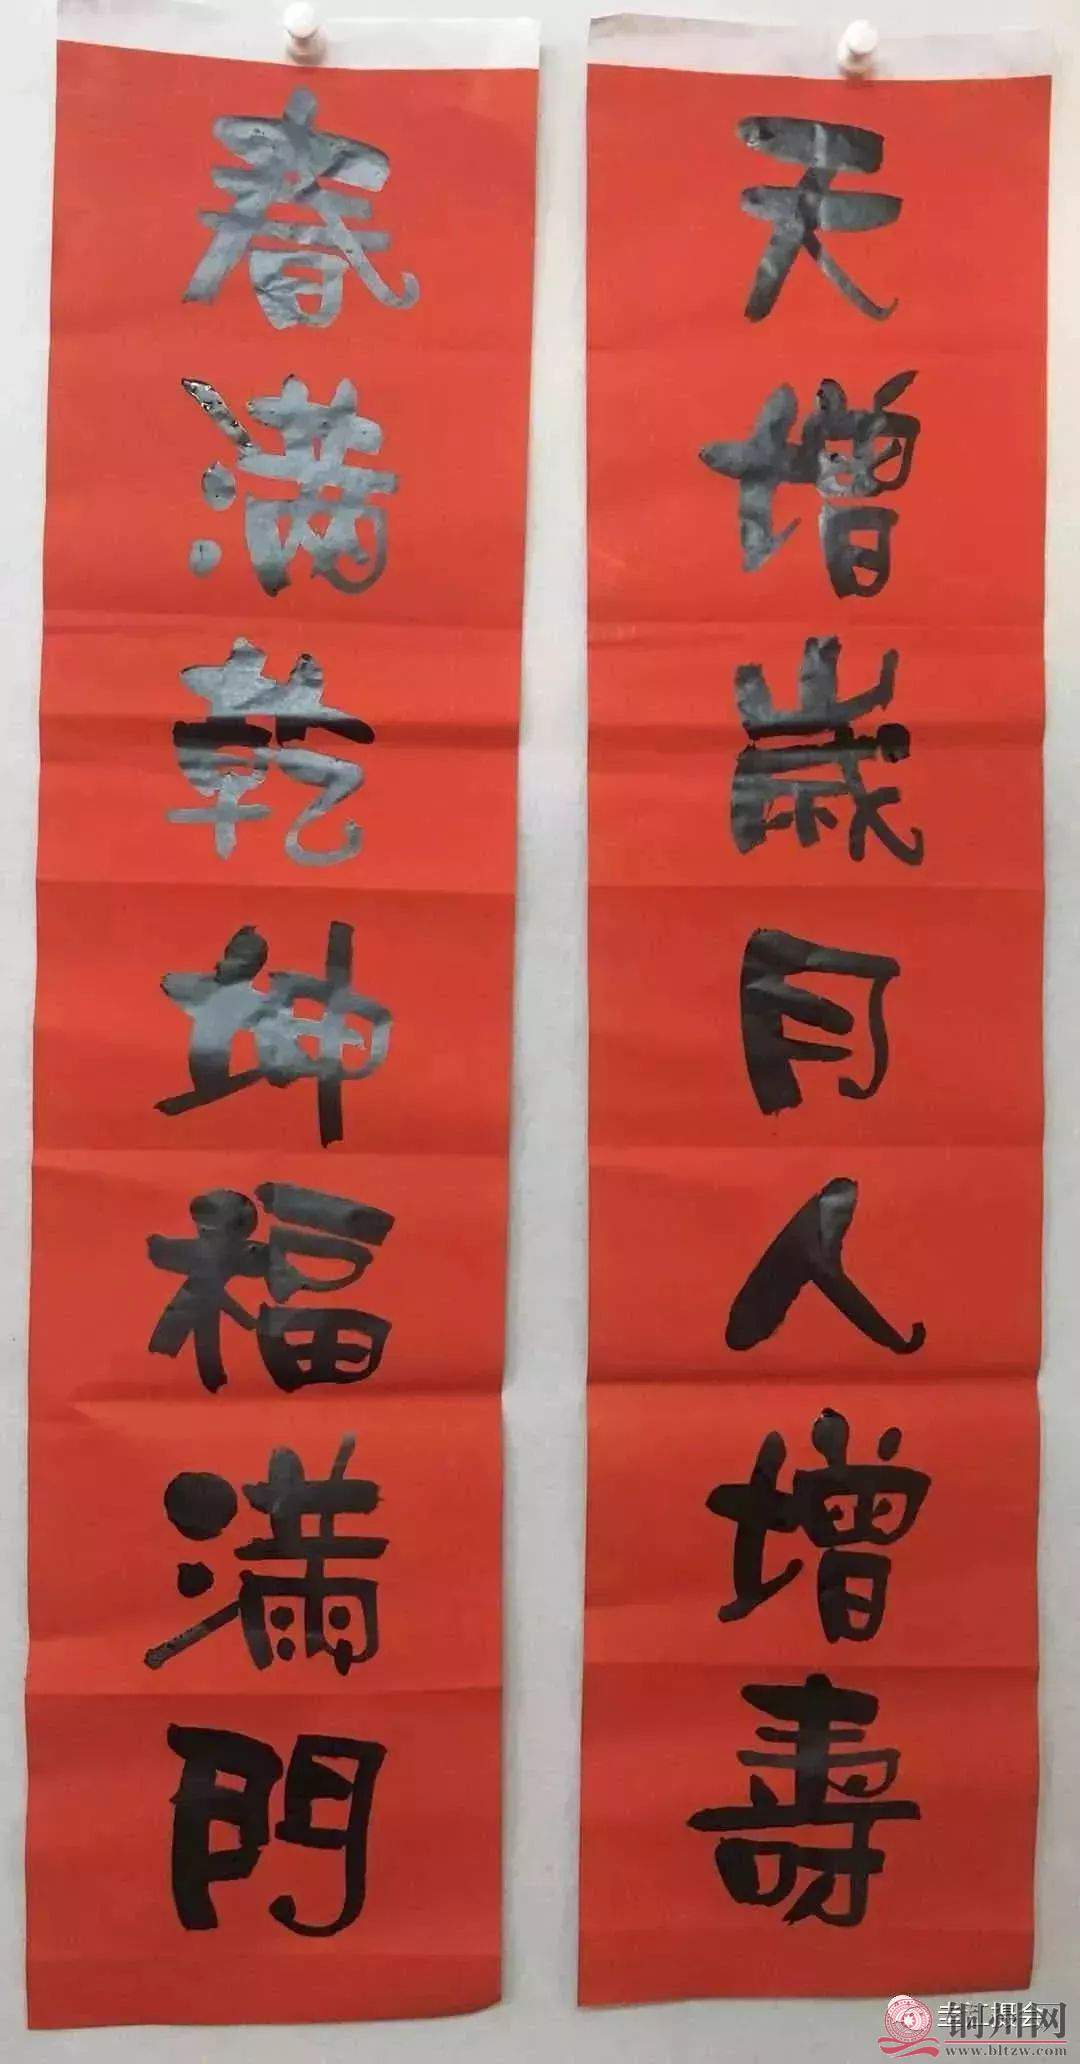 天增歲月人增壽
春满乾坤福滿門
铜州网
www.bltzw.com